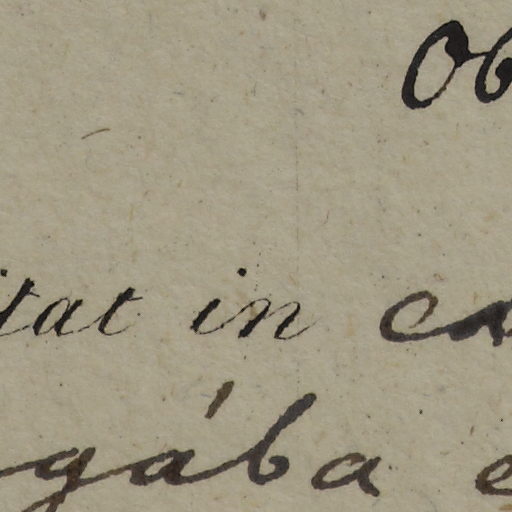 Ob
itat in ex
gába e